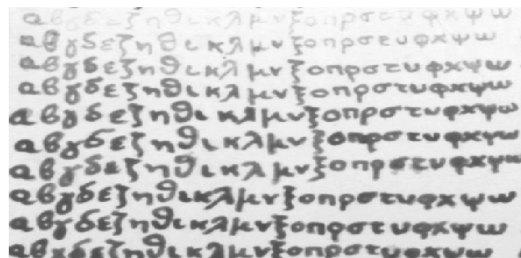 αβγδεζηθικλμνξοπρστυφχψω
αβγδεζηθικλμνξοπρστυφχψω
αβγδεζηθικλμνξοπρστυφχψω
αβγδεζηθικλμνξοπρστυφχψω
αβγδεζηθικλμνξοπρστυφχψω
αβγδεζηθικλμνξοπρστυφχψω
αβγδεζηθικλμνξοπρστυφχψω
αβγδεζηθικλμνξοπρστυφχψω
αβγδεζηθικλμνξοπρστυφχψω
αβγδεζηθικλμνξοπρστυφχψω